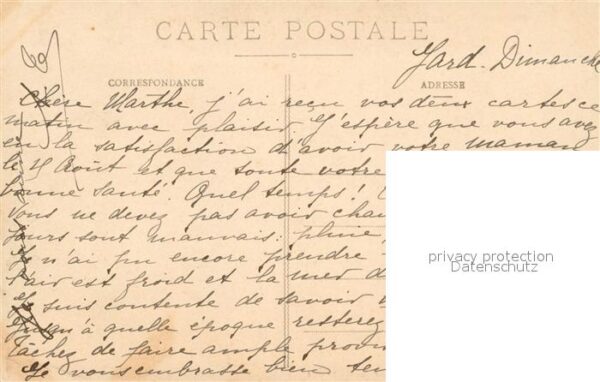 CARTE POSTALE
Jard. Dimanche
CORRESPONDANCE
ADRESSE
Chère Marthe, j'ai reçu vos deux cartes ce
matin avec plaisir. J'espère que vous avez
eu la satisfaction d'avoir votre maman
le 4 Août et que toute votre
bonne santé. Quel temps!
Vous ne devez pas avoir chau
jours sont mauvais: pluie,
Je n'ai pu encore prendre
l'air est froid et la mer d
Je suis contente de savoir
jusqu'à quelle époque resterez
Tâchez de faire ample provi
Je vous embrasse bien ten
privacy protection
Datenschutz